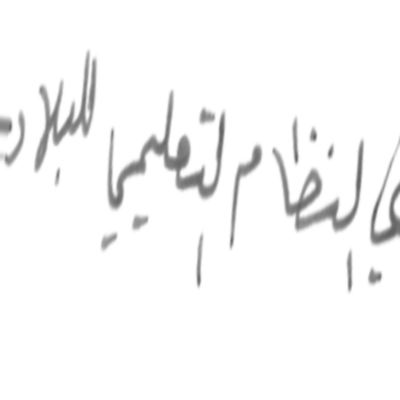 في النظام التعليمي للبلاد